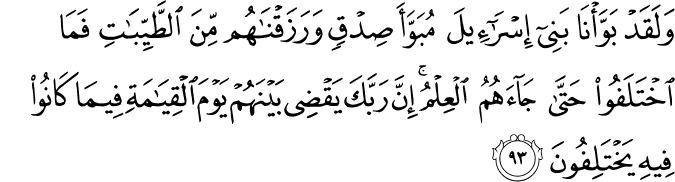 وَلَقَدۡ بَوَّأۡنَا بَنِيٓ إِسۡرَٰٓءِيلَ مُبَوَّأَ صِدۡقٖ وَرَزَقۡنَٰهُم مِّنَ ٱلطَّيِّبَٰتِ فَمَا
ٱخۡتَلَفُواْ حَتَّىٰ جَآءَهُمُ ٱلۡعِلۡمُۚ إِنَّ رَبَّكَ يَقۡضِي بَيۡنَهُمۡ يَوۡمَ ٱلۡقِيَٰمَةِ فِيمَا كَانُواْ
فِيهِ يَخۡتَلِفُونَ ٩٣